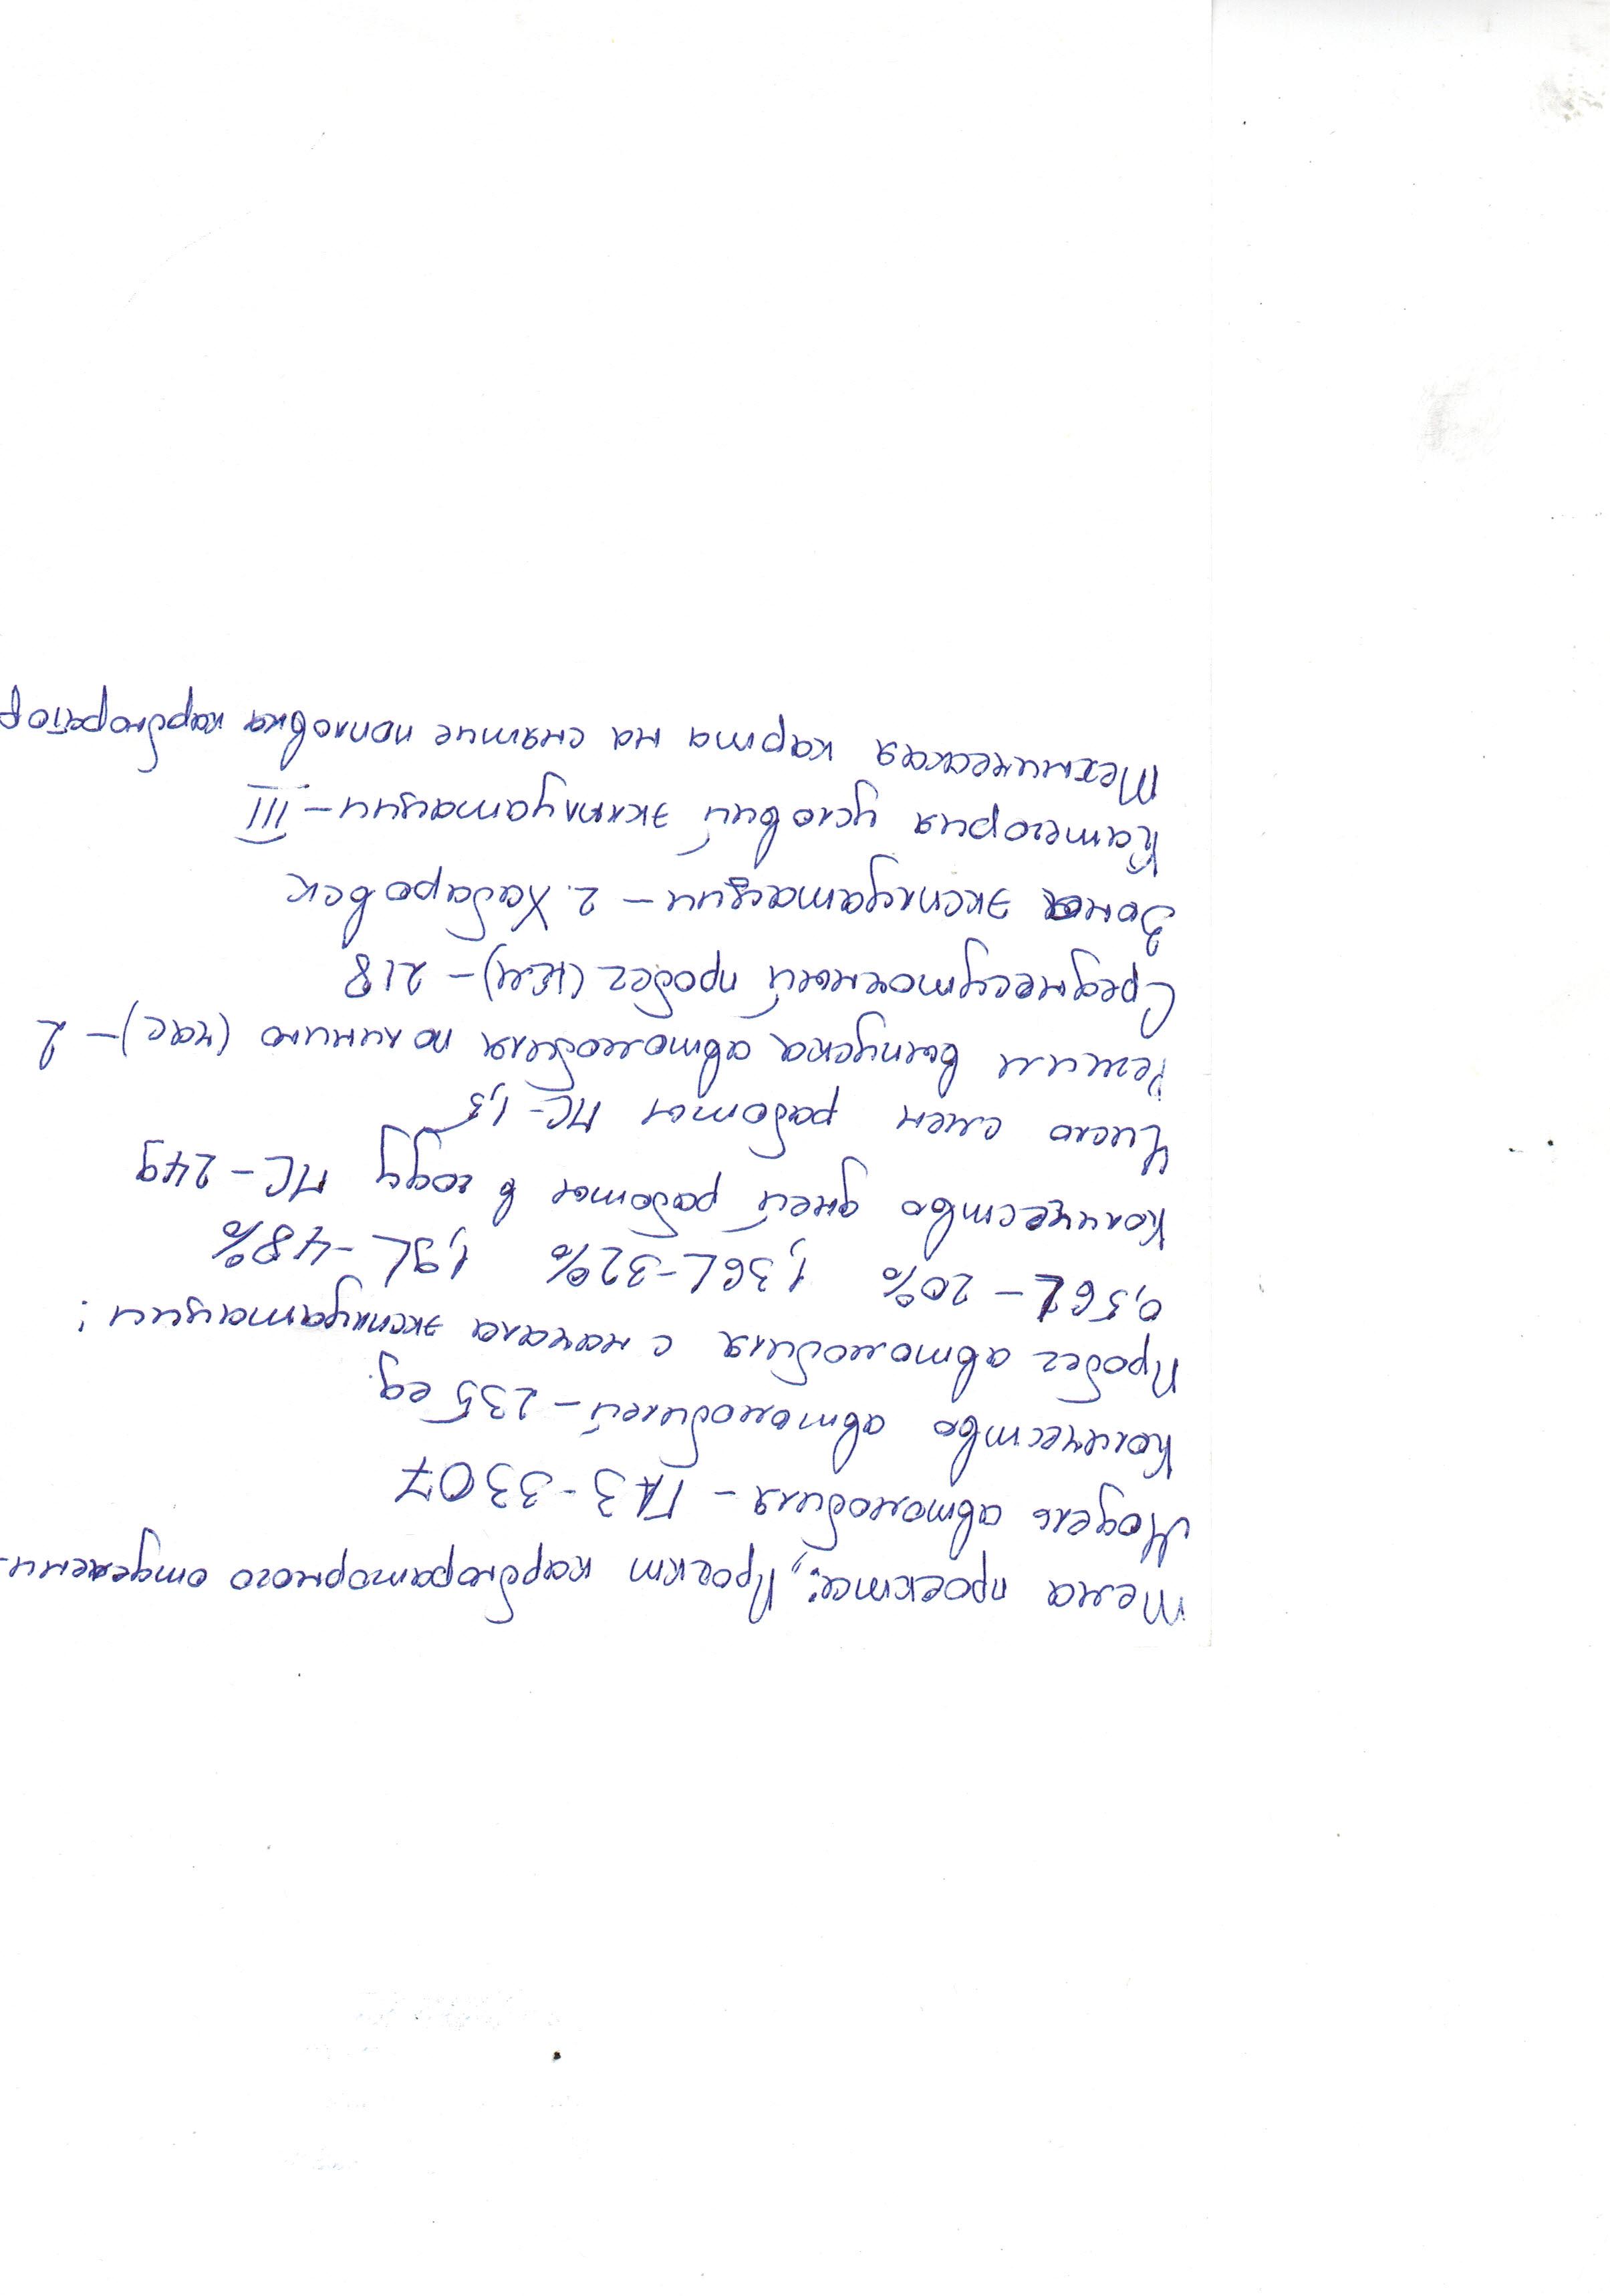 Тема проекта: „Проект карбюраторного отделени-
Модель автомобиля - ГАЗ-3307
Количество автомобилей - 235 ед.
Пробег автомобиля с начала эксплуатации:
0,56L - 20% 1,36L - 32% 1,9L - 48%
Количество дней работы в году ПС - 249
Число смен работы ПС - 1,5
Режим выпуска автомобиля по линию (час) - 2
Среднесуточный пробег (км) - 218
Зона эксплуатации - г. Хабаровск
Категория условий эксплуатации - III
Техническая карта на снятие попловка карбюратор